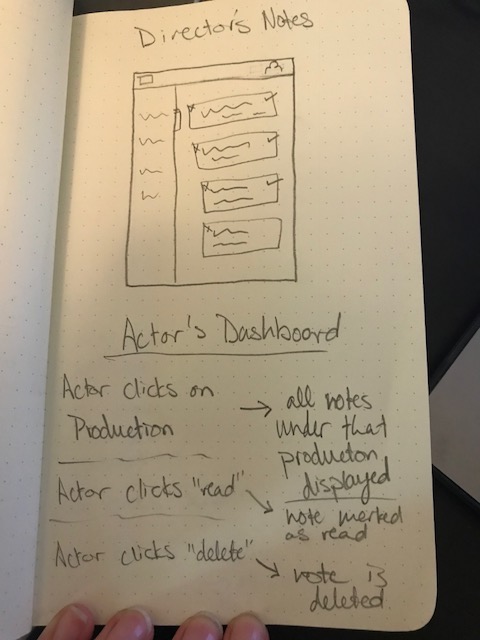 Director's Notes
Actor's Dashboard
Actor clicks on
Production
→ all notes
under that
producton
displayed
Actor clicks "read"
note marked
as read
Actor clicks "delete"
note is
deleted